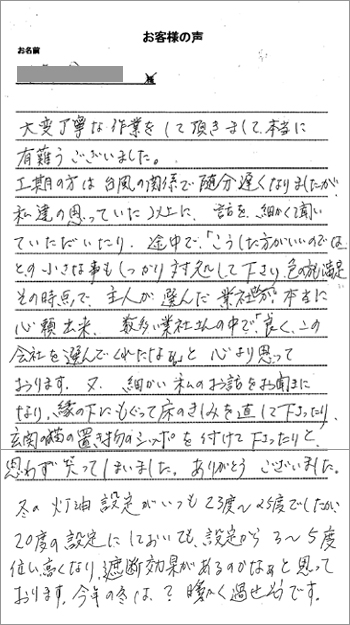 お客様の声
お名前
様
大変丁寧な作業をして頂きまして、本当に
有難うございました。
工期の方は台風の関係で随分遅くなりましたが、
私達の思っていた以上に、話を、細かく聞い
ていただいたり、途中で、「こうした方がいいのでは」
との小さな事もしっかり対処して下さり、色の満足
その時点で、主人が選んだ業社が、本当に
心頼出来、数多い業社さんの中で、「良く、この
会社を選んでくれたなぁ」と心より思って
おります。又、細かい私のお話をお聞きに
なり、縁の下にもぐって床のきしみを直して下さったり、
玄関の猫の置き物のシッポを付けて下さったりと、
思わず笑ってしまいました。ありがとうございました。
冬の灯油設定がいつも23度～25度でしたが、
20度の設定にしておいても、設定から3～5度
位い高くなり、遮断効果があるのかなぁと思って
おります。今年の冬は、?暖かく過せそうです。